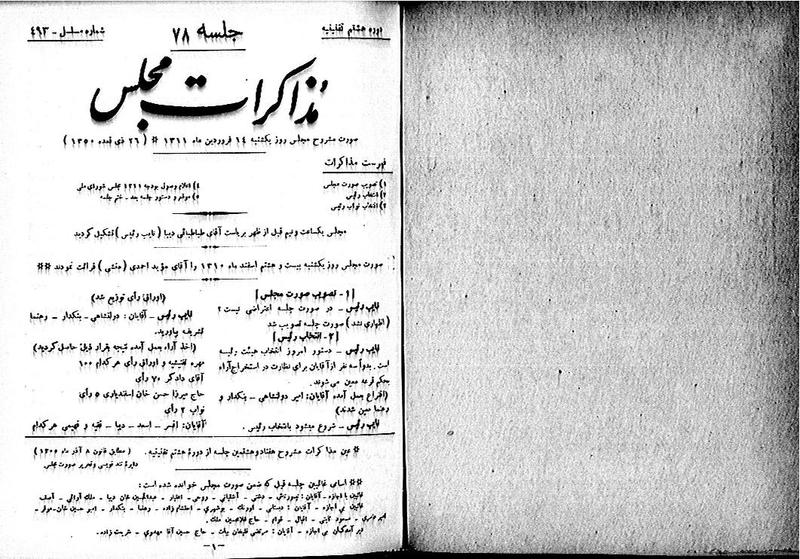 دوره هشتم تقنینیه
جلسه ۷۸
شماره مسلسل - ۴۹۳
مذاکرات مجلس
صورت مشروح مجلس روز یکشنبه ۱۴ فروردین ماه ۱۳۱۱ # ( ۲۶ ذی قعده ۱۳۵۰ )
فهرست مذاکرات
۱) تصویب صورت مجلس
۲) انتخاب رئیس
۳) انتخاب نواب رئیس
۴) اعلام وصول بودجه ۱۳۱۱ مجلس شورای ملی
۵) موقع و دستور جلسه بعد - ختم جلسه
مجلس یکساعت و نیم قبل از ظهر بریاست آقای طباطبائی دیبا ( نایب رئیس ) تشکیل گردید
صورت مجلس روز یکشنبه بیست و هشتم اسفند ماه ۱۳۱۰ را آقای مؤید احمدی ( منشی ) قرائت نمودند ##
[ ۱ - تصویب صورت مجلس ]
نایب رئیس - در صورت جلسه اعتراضی نیست ؟
( اظهاری نشد ) صورت جلسه تصویب شد
[ ۲ - انتخاب رئیس ]
نایب رئیس - دستور امروز انتخاب هیئت رئیسه
است . بدواً سه نفر از آقایان برای نظارت در استخراج آراء
بحکم قرعه معین می شوند.
(اقتراع بعمل آمده آقایان: امیر دولتشاهی - بنکدار و
رهنما معین شدند)
نایب رئیس - شروع میشود بانتخاب رئیس .
(اوراق رأی توزیع شد)
نایب رئیس - آقایان : دولتشاهی - بنکدار - رهنما
تشریف بیاورید.
(اخذ آراء بعمل آمده نتیجه بقرار ذیل حاصل گردید)
مهره تفتیشیه و اوراق رأی هر کدام ۱۰۰
آقای دادگر ۷۰ رأی
حاج میرزا حسن خان اسفندیاری ۵ رأی
نواب ۲ رأی
آقایان: افسر - اسعد - دیبا - فقیه و فهیمی هر کدام
# عین مذاکرات مشروح هفتاد و هشتمین جلسه از دورهٔ هشتم تقنینیه . ( مطابق قانون ۸ آذر ماه ۱۳۰۵ )
دایرهٔ تند نویسی و تحریر صورت مجلس
## اسامی غائبین جلسه قبل که ضمن صورت مجلس خوانده شده است :
غائبین با اجازه - آقایان : تیمورتاش - دشتی - آشتیانی - روحی - اعتبار - عبدالحسین خان دیبا - ملک آرائی - آصف
غائبین بی اجازه - آقایان : - اورنگ - بوشهری - احتشام زاده - رهنما - بنکدار - امیر حسین خان
مسعود ثابتی - اقبال - قوام - حاج غلامحسین ملک .
دیر آمدگان بی اجازه - آقایان : مرتضی قلیخان بیات - حاج حسین آقا مهدوی - شریعت زاده .
- ۱ -